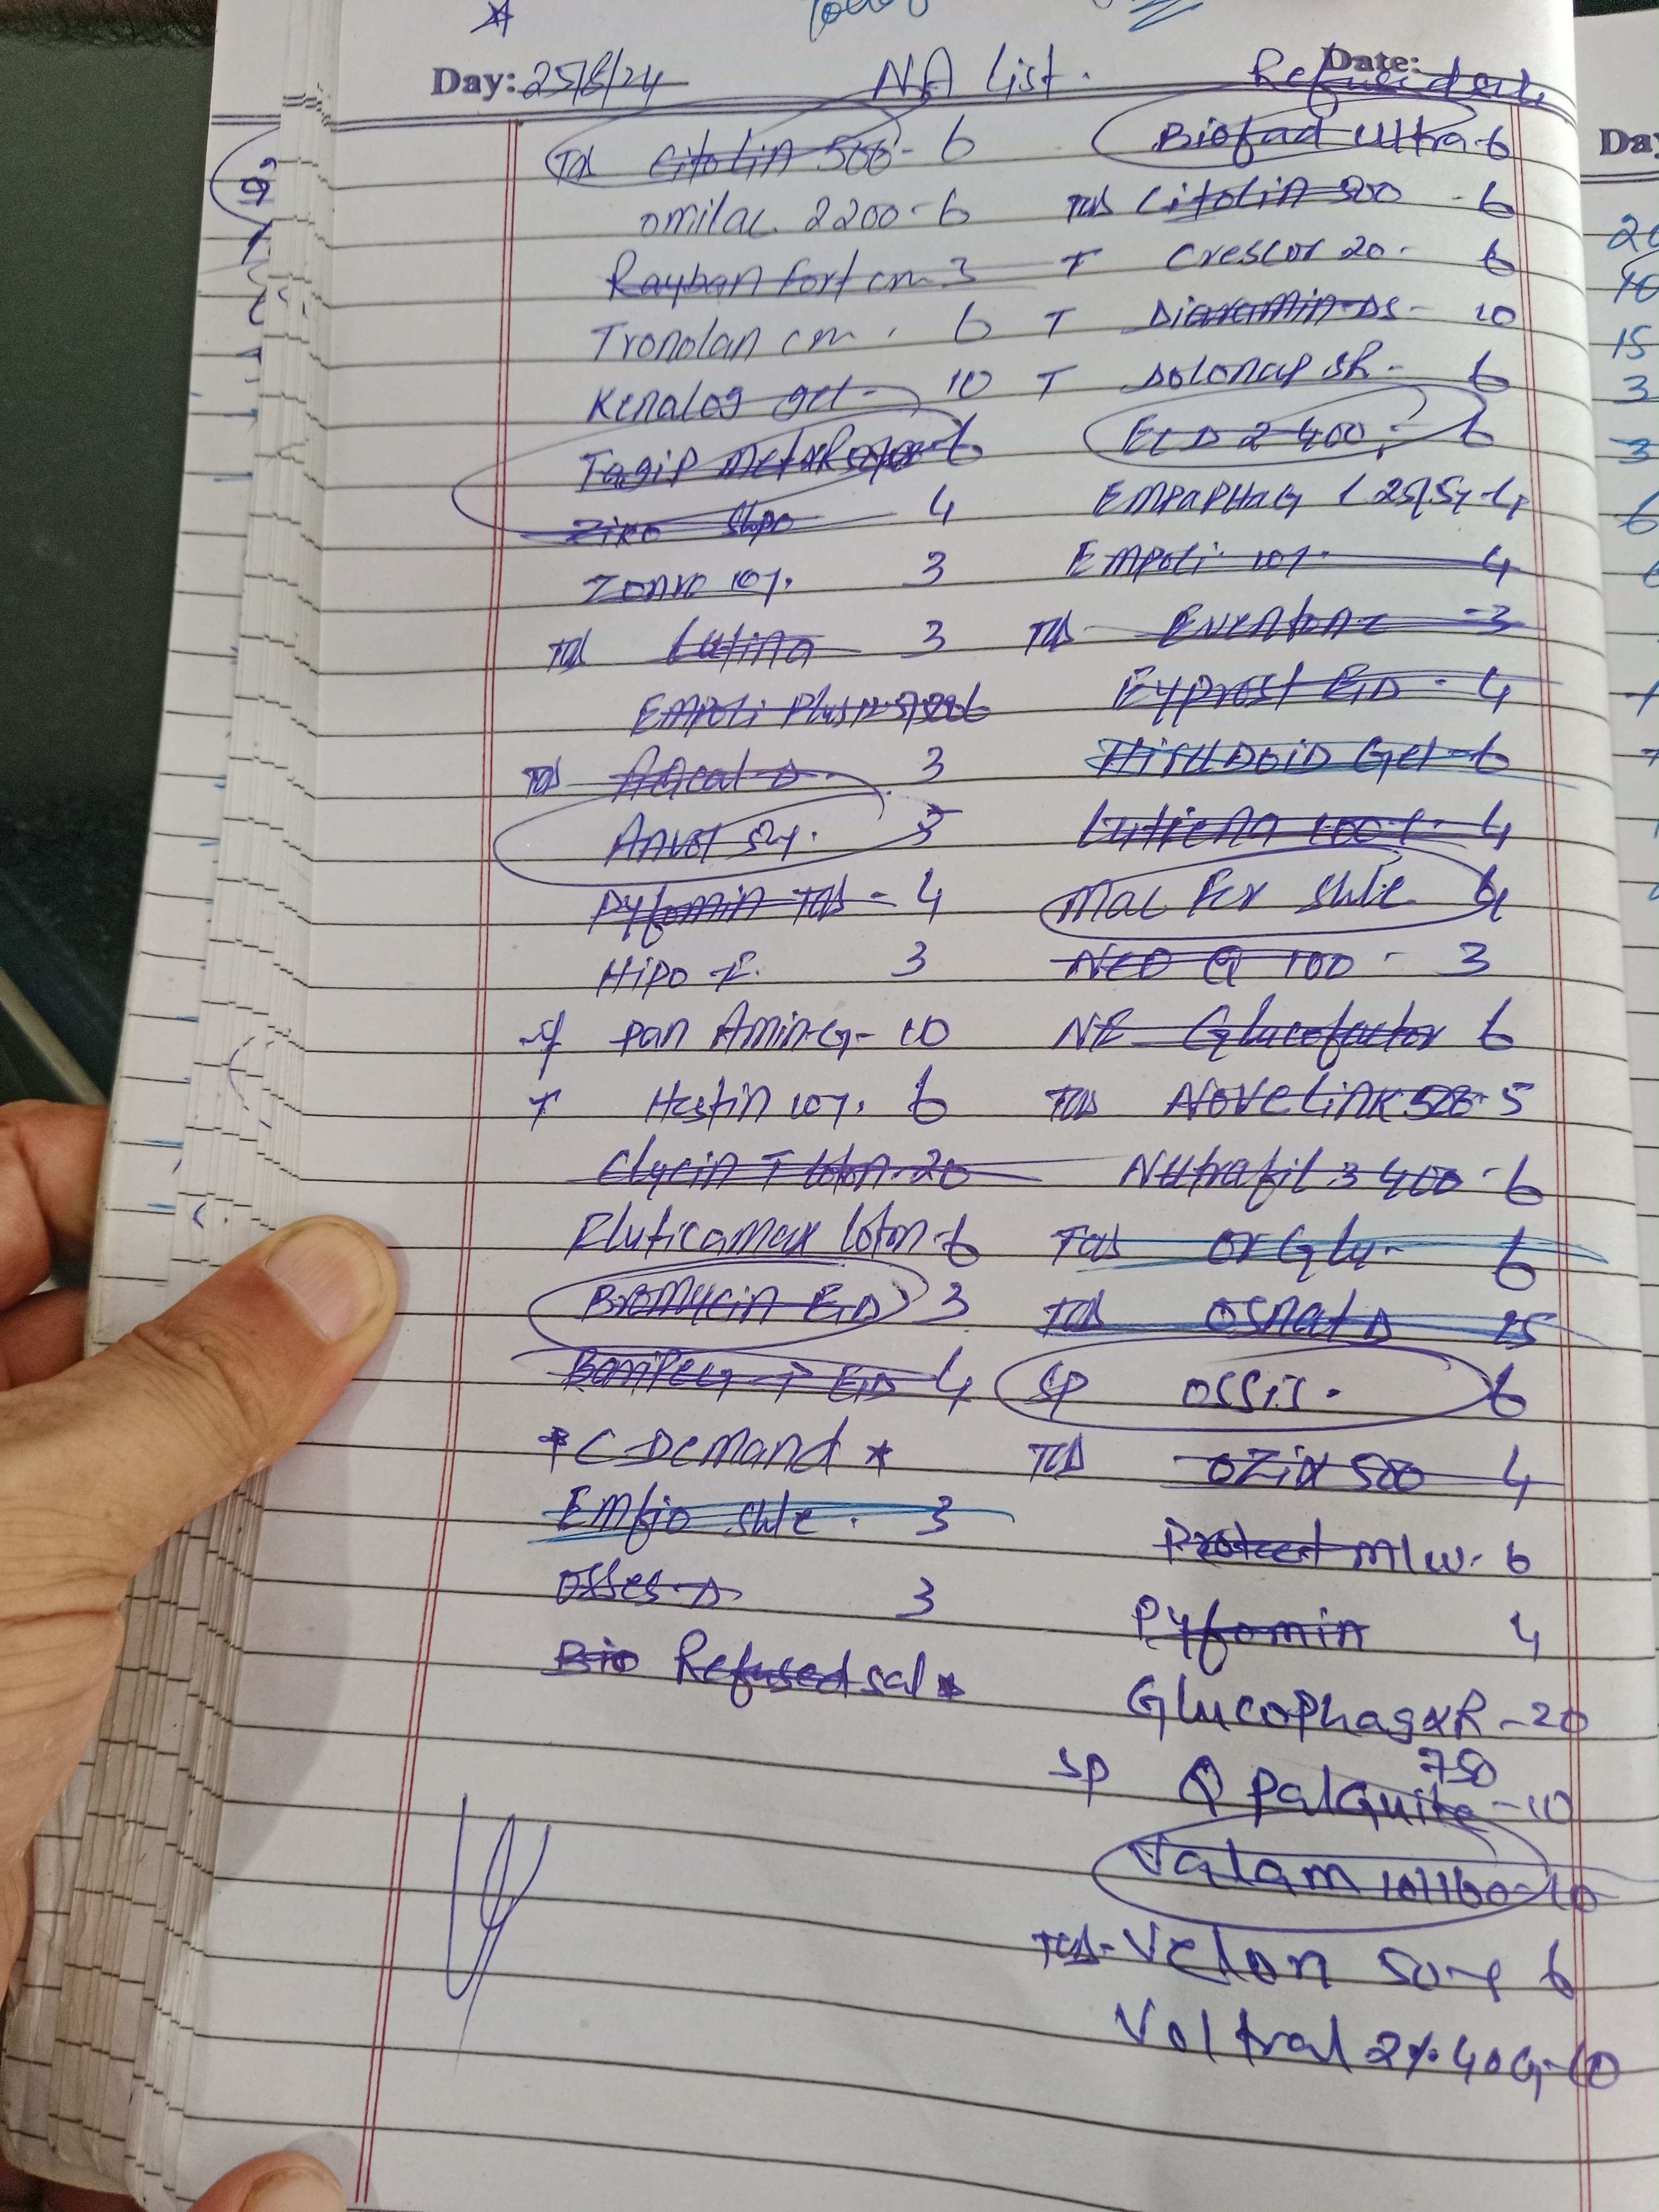 Day: 25/8/24 NA List. Date:
Tab Citolin 500 - 6
Omilac 2200 - 6
Rayban fort cm 3
Tronolan cm. 6
Kenalog gel - 10
Tagip Met XR 6
4
Zonvo 10/. 3
Tab Lutina 3
Empoli Plus 6
Tab AGcal-D. 3
3
Pyfomin Tab - 4
Hipo-F. 3
Sy pan Amin-G - 10
T Hestin 10/. 6
Clycin T loton - 20
Fluticamax loton - 6
Bromycin E/D 3
E/D 4
* C Demand *
shte. 3
Osses-D 3
Bio Refused sal
Biofad Ultra - 6
Tab Citolin 500 - 6
T Crescor 20. 6
T Diaramin-DS - 10
T Dolonap SR - 6
ECD 2 400 - 6
EMPAPHAG
Empoli 10/. 4
Tab - Eventon-c - 3
Eyprost E/D - 4
Hirudoid Gel - 6
Lutiena 4
Mac Fer Shte 4
Neo Q 100 - 3
NE Glucofactor 6
Tab Novelink 500 - 5
Nutrafil 3 400 - 6
Tab Or Glu - 6
Tab Osnat D 25
SP Ossis. 6
Tab Ozix 500 4
Protect M/W - 6
Pyfomin 4
Glucophag XR - 20
750
SP Q Palquite - 10
Valam 10/160 - 10
Tab - Velon 50 6
Voltral 2%. 40G - 10